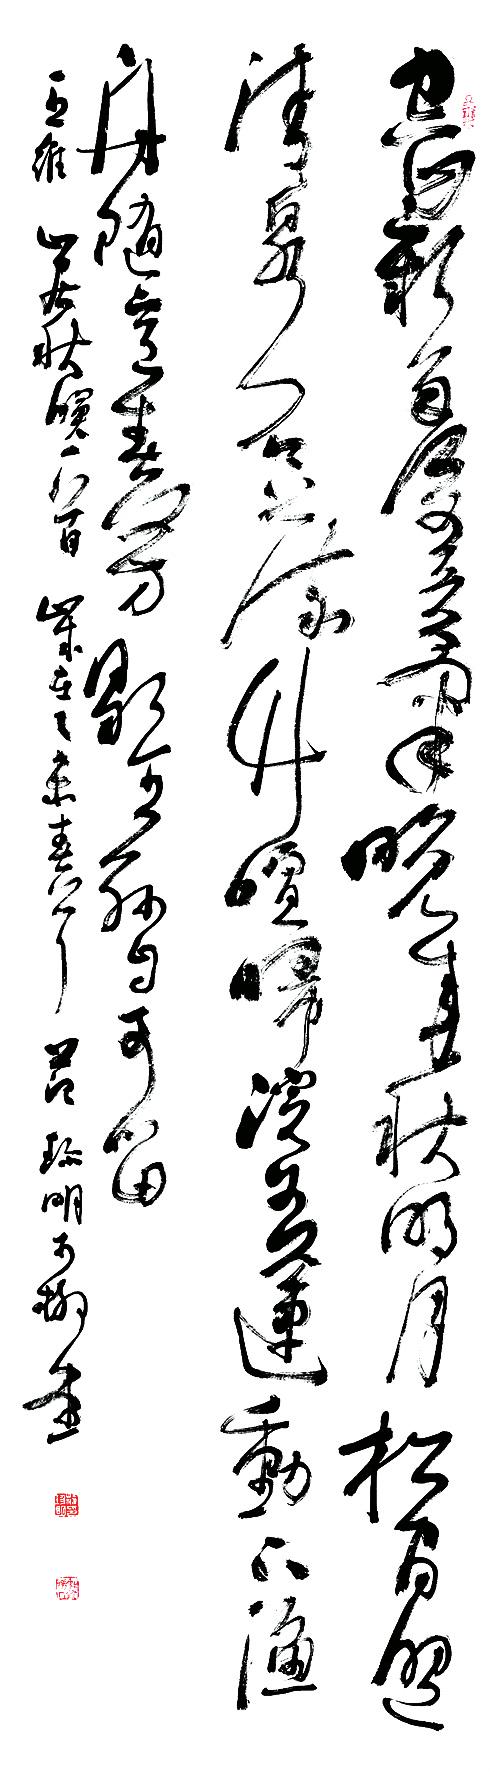 空山新雨後天氣晚來秋明月松間照
清泉石上流竹喧歸浣女蓮動下漁
舟隨意春芳歇王孫自可留
王維山居秋暝一首歲在乙未春